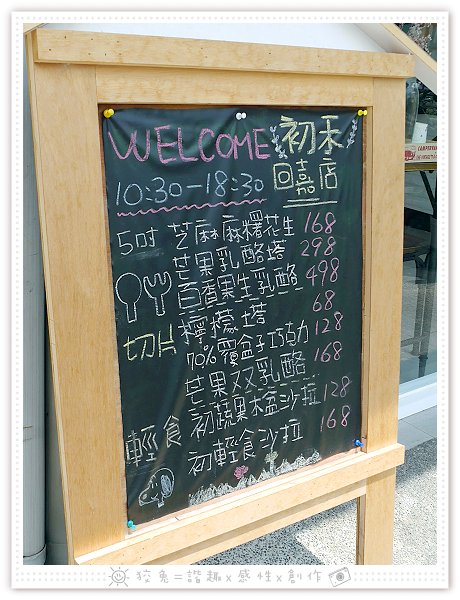 WELCOME 初禾
10:30-18:30 回嘉店
5吋 芝麻麻糬花生 168
芒果乳酪塔 298
百香果生乳酪 498
切片 檸檬塔 68
70%覆盆子巧克力 128
芒果双乳酪 168
輕食 初蔬果木盆沙拉 128
初輕食沙拉 168
狡兔=諧趣x感性x創作